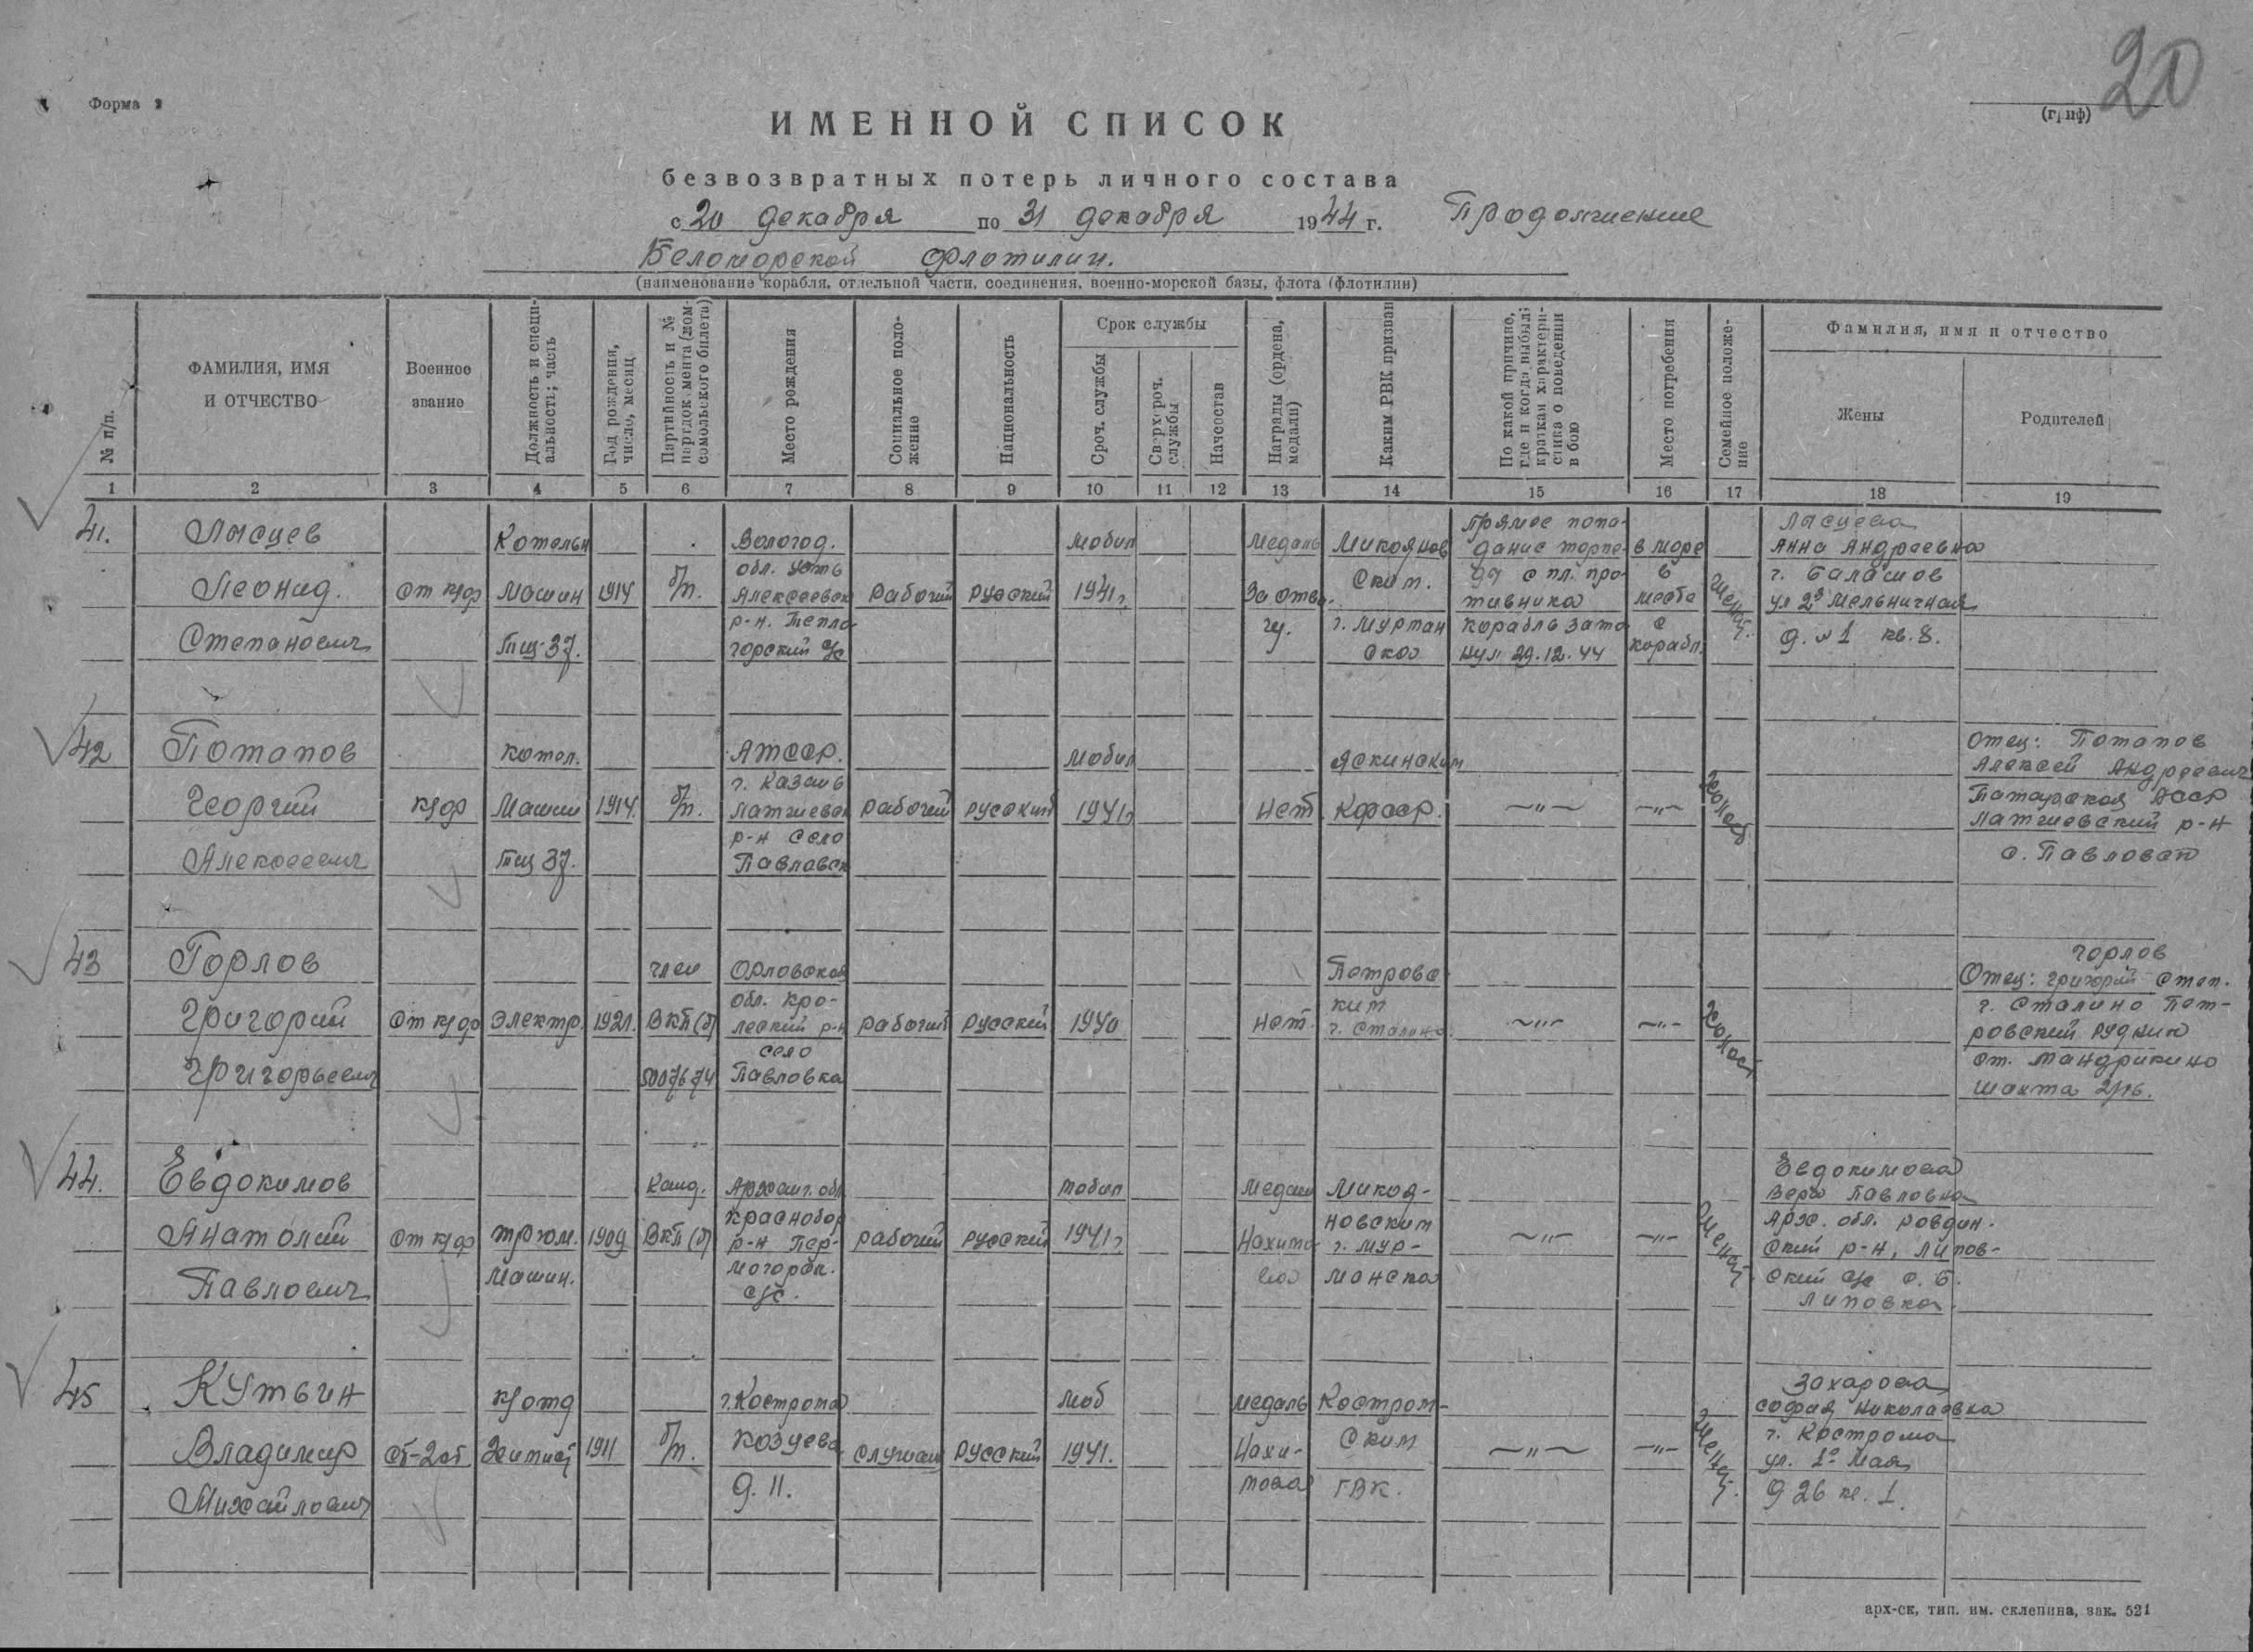 20
Форма 2
(гриф)
ИМЕННОЙ СПИСОК
безвозвратных потерь личного состава
с 20 декабря по 31 декабря 1944 г. Продолжение
Беломорской флотилии.
(наименование корабля, отдельной части, соединения, военно-морской базы, флота (флотилии)
№ п/п.
ФАМИЛИЯ, ИМЯ И ОТЧЕСТВО
Военное звание
Должность и специальность; часть
Год рождения, число, месяц
Партийность и № партдокумента (комсомольского билета)
Место рождения
Социальное положение
Национальность
Срок службы
Сроч. службы
Сверхсроч. службы
Начсостав
Награды (ордена, медали)
Каким РВК призван
По какой причине, где и когда выбыл; краткая характеристика о поведении в бою
Место погребения
Семейное положение
Фамилия, имя и отчество
Жены
Родителей
1 2 3 4 5 6 7 8 9 10 11 12 13 14 15 16 17 18 19
41.
Лысцев
Леонид.
Степанович
ст к/ф
Котельн
Машин
Тщ-37.
1914
б/п.
Вологод.
обл. Усть
Алексеевск
р-н. Тепло-
горский с/с
Рабочий
Русский
Мобил
1941г
Медаль
За отва-
гу.
Микоянов
ским.
г. Мурман
ска
Прямое попа-
дание торпе-
ды с пл. про-
тивника
корабль зато
нул 29.12.44
в море
в
месте
с
корабл.
женат.
Лысцева
Анна Андреевна
г. Балашов
ул 2я Мельничная
д. № 1 кв. 8.
42
Потапов
Георгий
Алексеевич
к/ф
котел.
Машин
Тщ 37.
1914.
б/п.
АТССР.
г. Казань
р-н село
Павловск
рабочий
русский
Мобил
1941г
Нет
Кфсср.
—"—
—"—
холост
Отец: Потапов
Алексей Андреевич
Татарская АССР
р-н
с. Павловск
43
Горлов
Григорий
Григорьевич
ст к/ф
электр.
1921.
член
ВКП(б)
5007674
Орловская
обл. Кро-
мской р-н
село
Павловка
рабочий
русский
1940
Нет.
Петровс
ким
г. Сталино.
—"—
—"—
холост
Горлов
Отец: Григорий Степ.
г. Сталино Пет-
ровский рудник
ст. Мандрыкино
шахта
44.
Евдокимов
Анатолий
Павлович
ст к/ф
трюм.
Машин.
1909
Канд.
ВКП(б)
Арханг. обл
Краснобор
р-н Пер-
могорск.
с/с.
рабочий
русский
мобил
1941г
Медаль
Нахимо
ва
Микоя-
новским
г. Мур-
манска
—"—
—"—
женат
Евдокимова
Вера Павловна
Арх. обл. Ровдин-
ский р-н, Липов-
ский с/с с. Б.
Липовка.
45
Кутьин
Владимир
Михайлович
Ст-2ст
к/отд
1911
б/п.
г. Кострома
Козуева
д. 11.
служащ
русский
моб
1941.
медаль
Нахи-
мова
Костром-
ским
ГВК.
—"—
—"—
женат.
Захарова
София Николаевна
г. Кострома
ул. 1о Мая
д 26 кв. 1.
арх-ск, тип. им. склепина, зак. 521